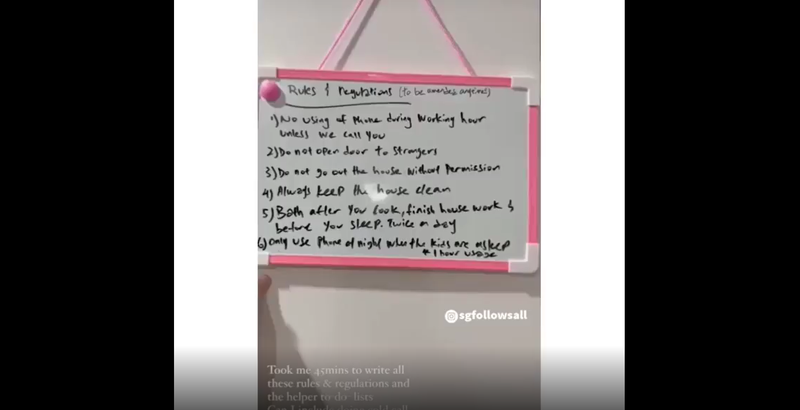 Rules & Regulations (to be amended anytime)
1) No using of Phone during working hour
unless we call you
2) Do not open door to strangers
3) Do not go out the house without Permission
4) Always keep the house clean
5) Bath after you cook, finish house work &
before you sleep. Twice a day
6) Only use Phone at night when the kids are asleep
* 1 hour usage
sgfollowsall
Took me 45mins to write all
these rules & regulations and
the helper to do lists